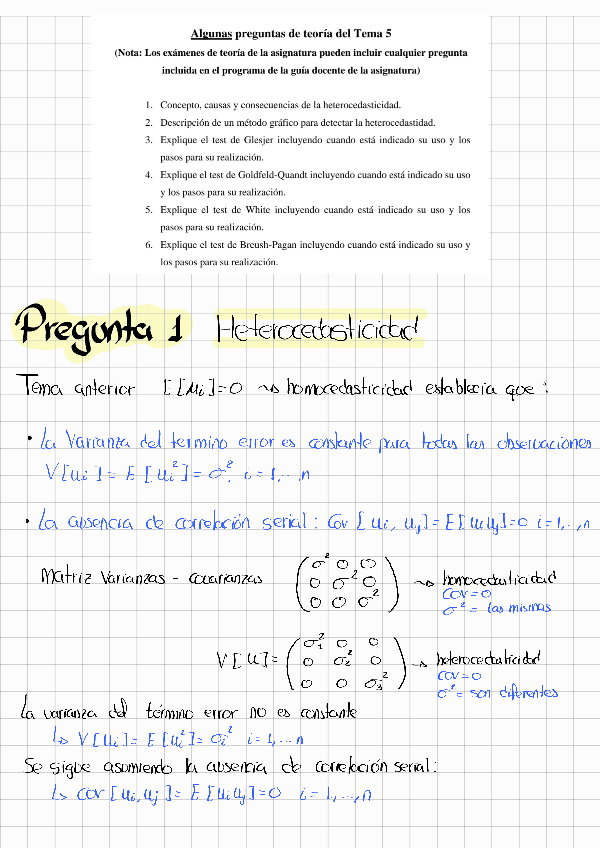 Algunas preguntas de teoría del Tema 5
(Nota: Los exámenes de teoría de la asignatura pueden incluir cualquier pregunta
incluida en el programa de la guía docente de la asignatura)
1. Concepto, causas y consecuencias de la heterocedasticidad.
2. Descripción de un método gráfico para detectar la heterocedastidad.
3. Explique el test de Glesjer incluyendo cuando está indicado su uso y los
pasos para su realización.
4. Explique el test de Goldfeld-Quandt incluyendo cuando está indicado su uso
y los pasos para su realización.
5. Explique el test de White incluyendo cuando está indicado su uso y los
pasos para su realización.
6. Explique el test de Breush-Pagan incluyendo cuando está indicado su uso y
los pasos para su realización.
Pregunta 1 Heterocedasticidad
Tema anterior E[μi]=0 ⇝ homocedasticidad establecia que :
• La Varianza del termino error es constante para todas las observaciones
V[ui] = E[ui²] = σ², i=1,...,n
• La ausencia de correlación serial : Cov[ui, uj] = E[uiuj]=0 i=1,..,n
Matriz Varianzas - covarianzas (σ² 0 0
0 σ² 0
0 0 σ²) ⇝ homocedasticidad
COV=0
σ² = las mismas
V[u] = (σ₁² 0 0
0 σ₂² 0
0 0 σ₃²) → heterocedasticidad
COV=0
σ² = son diferentes
La varianza del término error no es constante
↳ V[ui] = E[ui²] = σi² i=1,...n
Se sigue asumiendo la ausencia de correlación serial :
↳ cov[ui,uj] = E[uiuj]=0 i=1,...,n